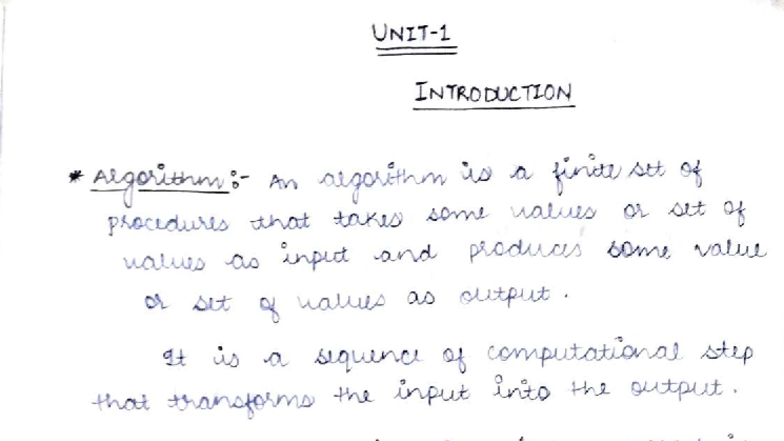 UNIT-1
INTRODUCTION
* Algorithm:- An algorithm is a finite set of
procedures that takes some values or set of
values as input and produces some value
or set of values as output.
It is a sequence of computational step
that transforms the input into the output.